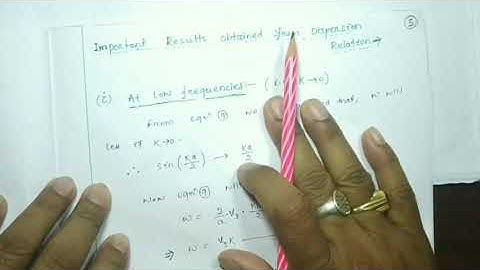 ⑤
Important Results obtained from Dispersion
Relation →
(i) At Low frequencies - (K → 0)
From eqn ⑨ we that, w will
Less if K→0.
∴ sin (Ka/2) → Ka/2
Now eqn ⑨ will
w = 2/a . Vs . Ka/2
⇒ w = Vs K